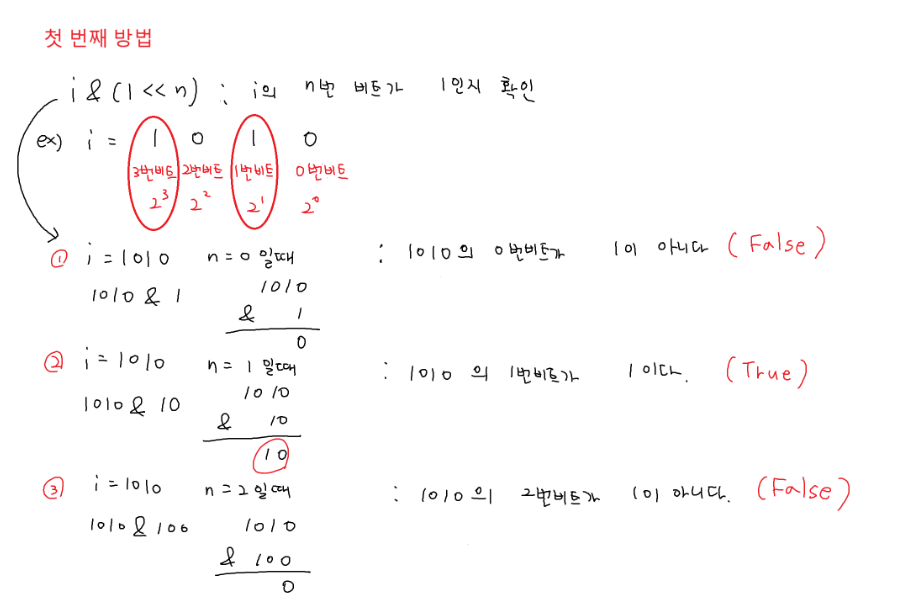 첫 번째 방법
i & (1 << n) : i의 n번 비트가 1인지 확인
ex) i = 1 0 1 0
3번비트 2번비트 1번비트 0번비트
2³ 2² 2¹ 2⁰
① i = 1010 n = 0 일때 : 1010의 0번비트가 1이 아니다 (False)
1010 & 1 1010
& 1
0
② i = 1010 n = 1 일때 : 1010 의 1번비트가 1 이다. (True)
1010 & 10 1010
& 10
10
③ i = 1010 n = 2 일때 : 1010의 2번비트가 1이 아니다. (False)
1010 & 100 1010
& 100
0